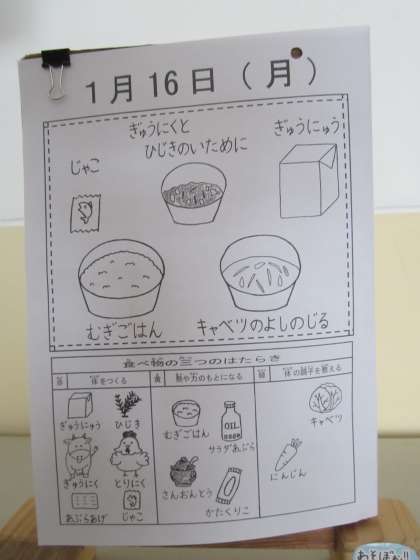 1月16日(月)
ぎゅうにくと
ひじきのいために
ぎゅうにゅう
じゃこ
むぎごはん
キャベツのよしのじる
食べ物の三つのはたらき
体をつくる
熱や力のもとになる
体の調子を整える
ぎゅうにゅう
ひじき
ぎゅうにく
とりにく
あぶらあげ
じゃこ
むぎごはん
OIL
サラダあぶら
さんおんとう
かたくりこ
キャベツ
にんじん
あそぼう!!